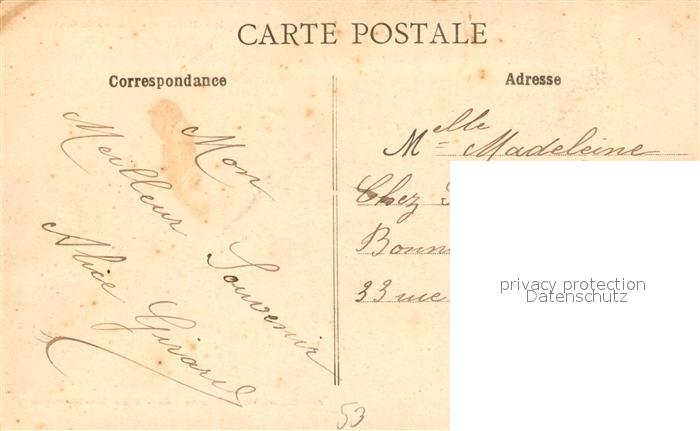 CARTE POSTALE
Correspondance
Mon
Meilleur Souvenir
Alice Girard
Adresse
Melle Madeleine
Chez
Bonn
33 rue
privacy protection
Datenschutz
53